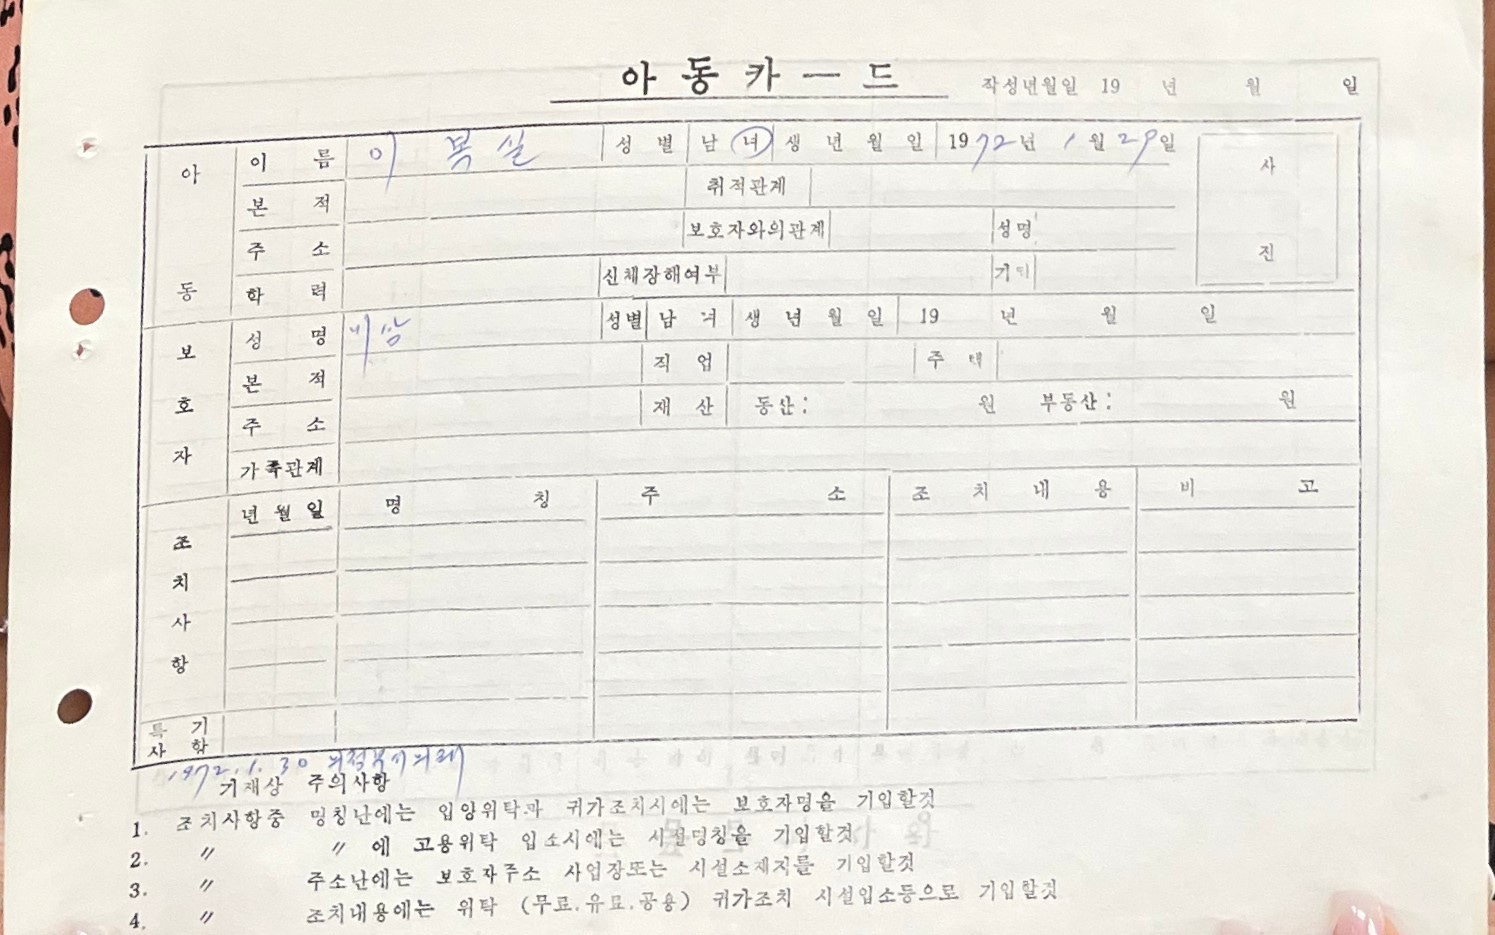 아동카―드
작성년월일 19 년 월 일
아동 이름 이복실 성별 남 녀 생년월일 1972년 1월 29일
사진
본적 취적관계
주소 보호자와의관계 성명
학력 신체장해여부 기타
보호자 성명 미상 성별 남 녀 생년월일 19 년 월 일
본적 직업 주택
주소 재산 동산: 원 부동산: 원
가족관계
조치사항 년월일 명칭 주소 조치내용 비고
특기사항
1972. 1. 30 의정부시의뢰
기재상 주의사항
1. 조치사항중 명칭난에는 입양위탁과 귀가조치시에는 보호자명을 기입할것
2. 〃 〃 에 고용위탁 입소시에는 시설명칭을 기입할것
3. 〃 주소난에는 보호자주소 사업장또는 시설소재지를 기입할것
4. 〃 조치내용에는 위탁 (무료.유료.공용) 귀가조치 시설입소등으로 기입할것